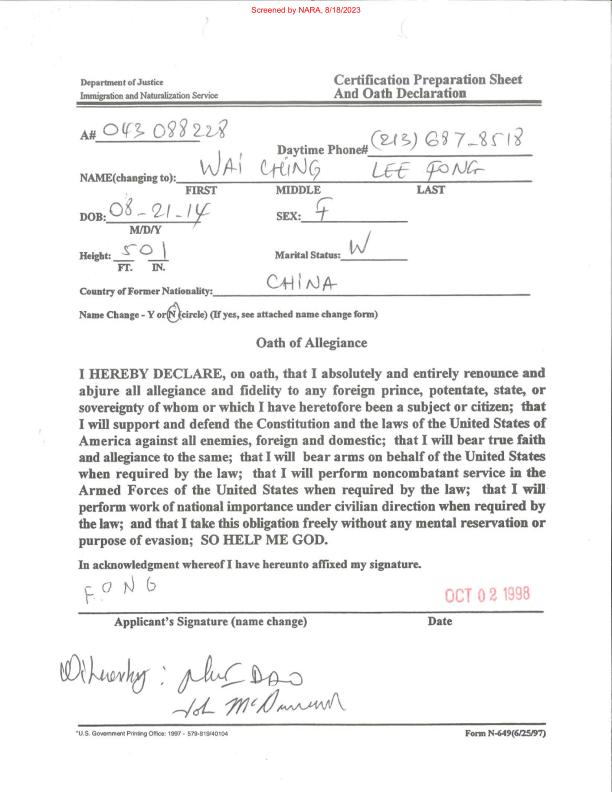 Screened by NARA, 8/18/2023
Department of Justice
Immigration and Naturalization Service
Certification Preparation Sheet
And Oath Declaration
A# 043 088228
Daytime Phone# (213) 687-8518
NAME(changing to): WAI CHING LEE FONG
FIRST MIDDLE LAST
DOB: 08-21-14 SEX: F
M/D/Y
Height: 5 01 Marital Status: W
FT. IN.
Country of Former Nationality: CHINA
Name Change - Y or N (circle) (If yes, see attached name change form)
Oath of Allegiance
I HEREBY DECLARE, on oath, that I absolutely and entirely renounce and
abjure all allegiance and fidelity to any foreign prince, potentate, state, or
sovereignty of whom or which I have heretofore been a subject or citizen; that
I will support and defend the Constitution and the laws of the United States of
America against all enemies, foreign and domestic; that I will bear true faith
and allegiance to the same; that I will bear arms on behalf of the United States
when required by the law; that I will perform noncombatant service in the
Armed Forces of the United States when required by the law; that I will
perform work of national importance under civilian direction when required by
the law; and that I take this obligation freely without any mental reservation or
purpose of evasion; SO HELP ME GOD.
In acknowledgment whereof I have hereunto affixed my signature.
FONG OCT 02 1998
Applicant's Signature (name change) Date
DAO
*U.S. Government Printing Office: 1997 - 579-819/40104 Form N-649(6/25/97)